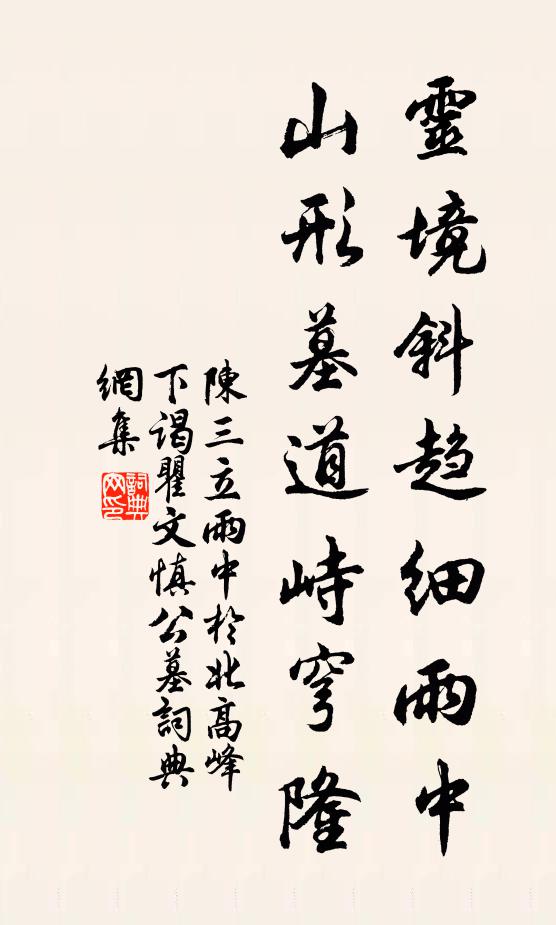 靈境斜趋細雨中
山形墓道峙穹隆
陳三立雨中於北高峰
下謁瞿文慎公墓詞典
網集
詞典
网印